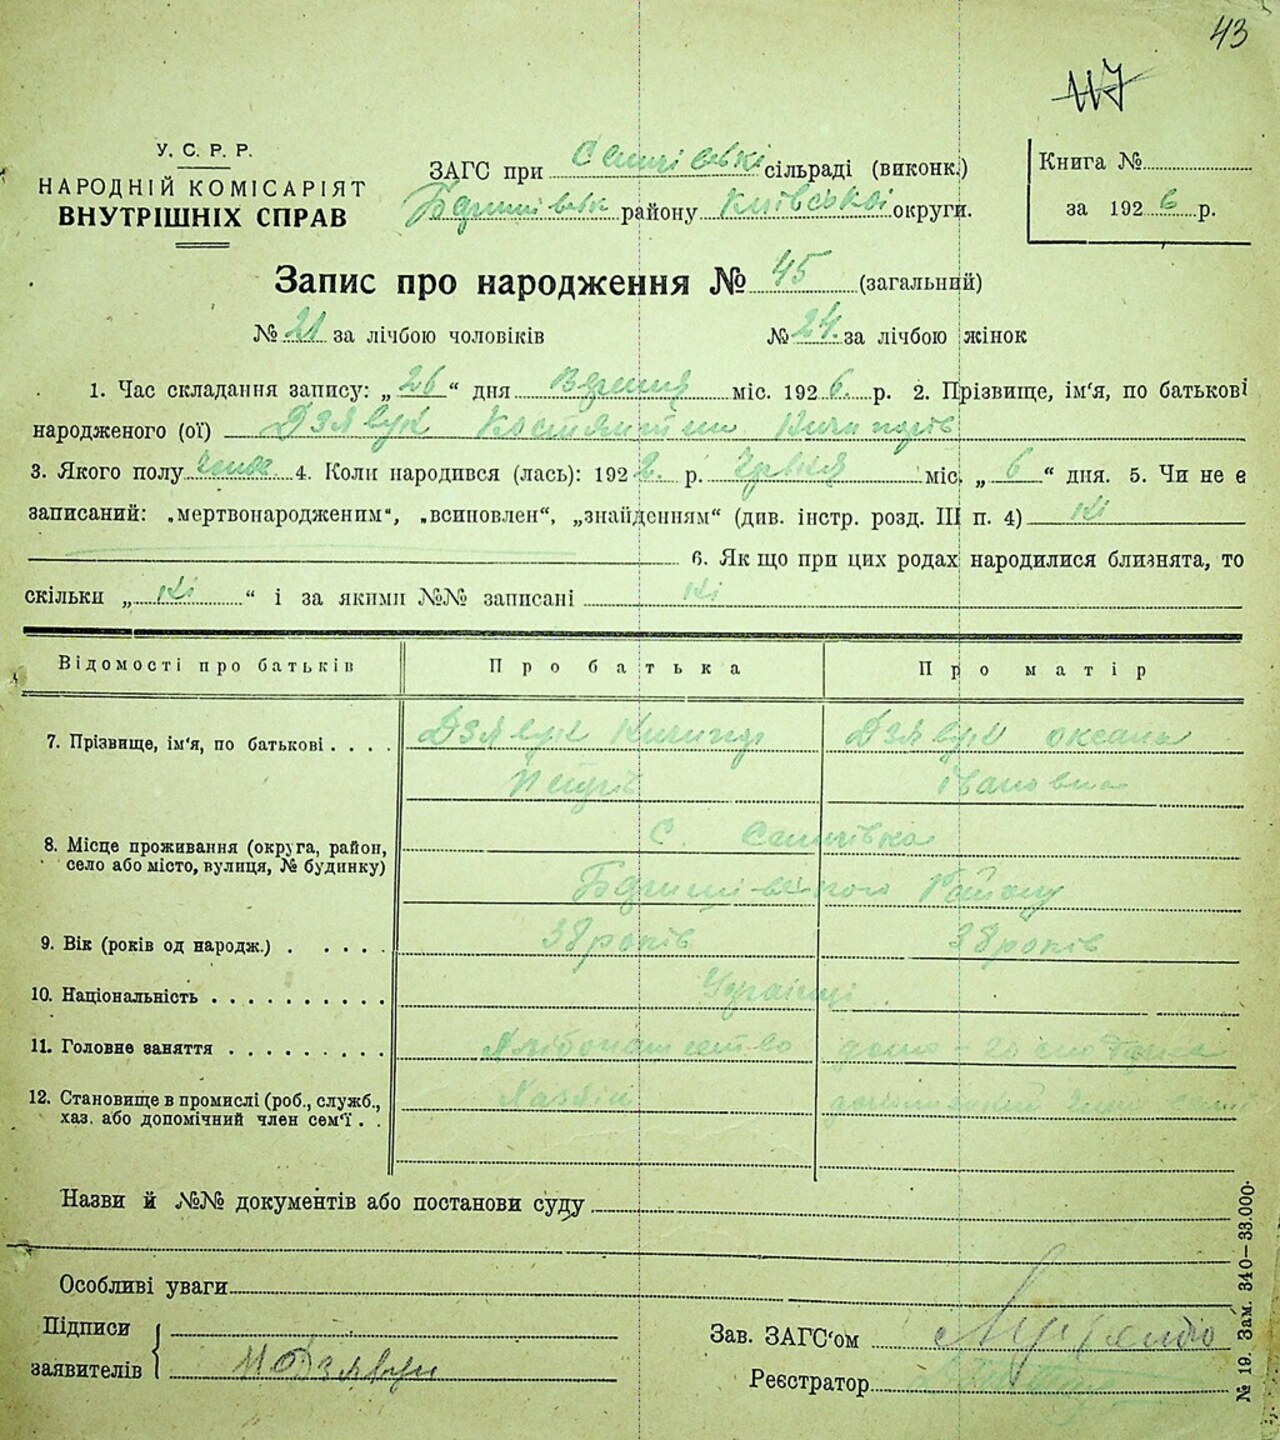 43
117
У. С. Р. Р.
НАРОДНІЙ КОМІСАРІЯТ
ВНУТРІШНІХ СПРАВ
ЗАГС при сільраді (виконк.)
району Київської округи.
Книга №
за 1926 р.
Запис про народження № 45 (загальний)
№ 21 за лічбою чоловіків № 24. за лічбою жінок
1. Час складання запису: „26“ дня Вересня міс. 1926. р. 2. Прізвище, ім‘я, по батькові
народженого (ої) Дзявук Костянтин
3. Якого полу 4. Коли народився (лась): 1922. р. Червня міс. „6“ дня. 5. Чи не є
записаний: „мертвонародженим“, „всиновлен“, „знайденням“ (див. інстр. розд. III п. 4) Ні
6. Як що при цих родах народилися близнята, то
скільки „Ні“ і за якими №№ записані Ні
Відомості про батьків Про батька Про матір
7. Прізвище, ім‘я, по батькові . . . . Дзявук Дзявук Оксана
Петрів Івановна
8. Місце проживання (округа, район, село або місто, вулиця, № будинку) С.
Району
9. Вік (років од народж.) . . . . . 38 років 38 років
10. Національність . . . . . . . . . . Українці
11. Головне заняття . . . . . . . . . Хліборобство
12. Становище в промислі (роб., служб., хаз. або допомічний член сем‘ї . . Хазяїн
Назви й №№ документів або постанови суду
Особливі уваги
Підписи
заявителів Дзявук
Зав. ЗАГС‘ом
Реєстратор
№ 19. Зам. 340—33.000.